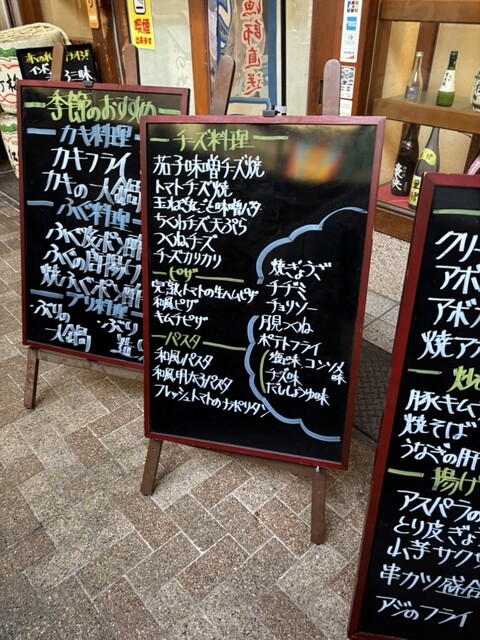 漁師直送
喫煙
季節のおすすめ
カキ料理
カキフライ
カキの一人鍋
ふぐ料理
ふぐ皮ポン酢
焼ふぐポン酢
ブリ料理
ぶりの
一人鍋
チーズ料理
茄子味噌チーズ焼
トマトチーズ焼
玉ねぎ丸ごと味噌バター
ちくわチーズ天ぷら
つくねチーズ
チーズカリカリ
ピザ
完熟トマトの生ハムピザ
和風ピザ
キムチピザ
パスタ
和風パスタ
和風明太子パスタ
フレッシュトマトのナポリタン
焼ぎょうざ
チヂミ
チョリソー
月見つくね
ポテトフライ
塩味・コンソメ味
チーズ味
だししょうゆ味
クリー
アボ
アボカ
焼ア
炒
豚キムチ
焼そば
うなぎの肝
揚げ
アスパラの
とり皮ぎょ
山芋サクサ
串カツ盛合
アジのフライ